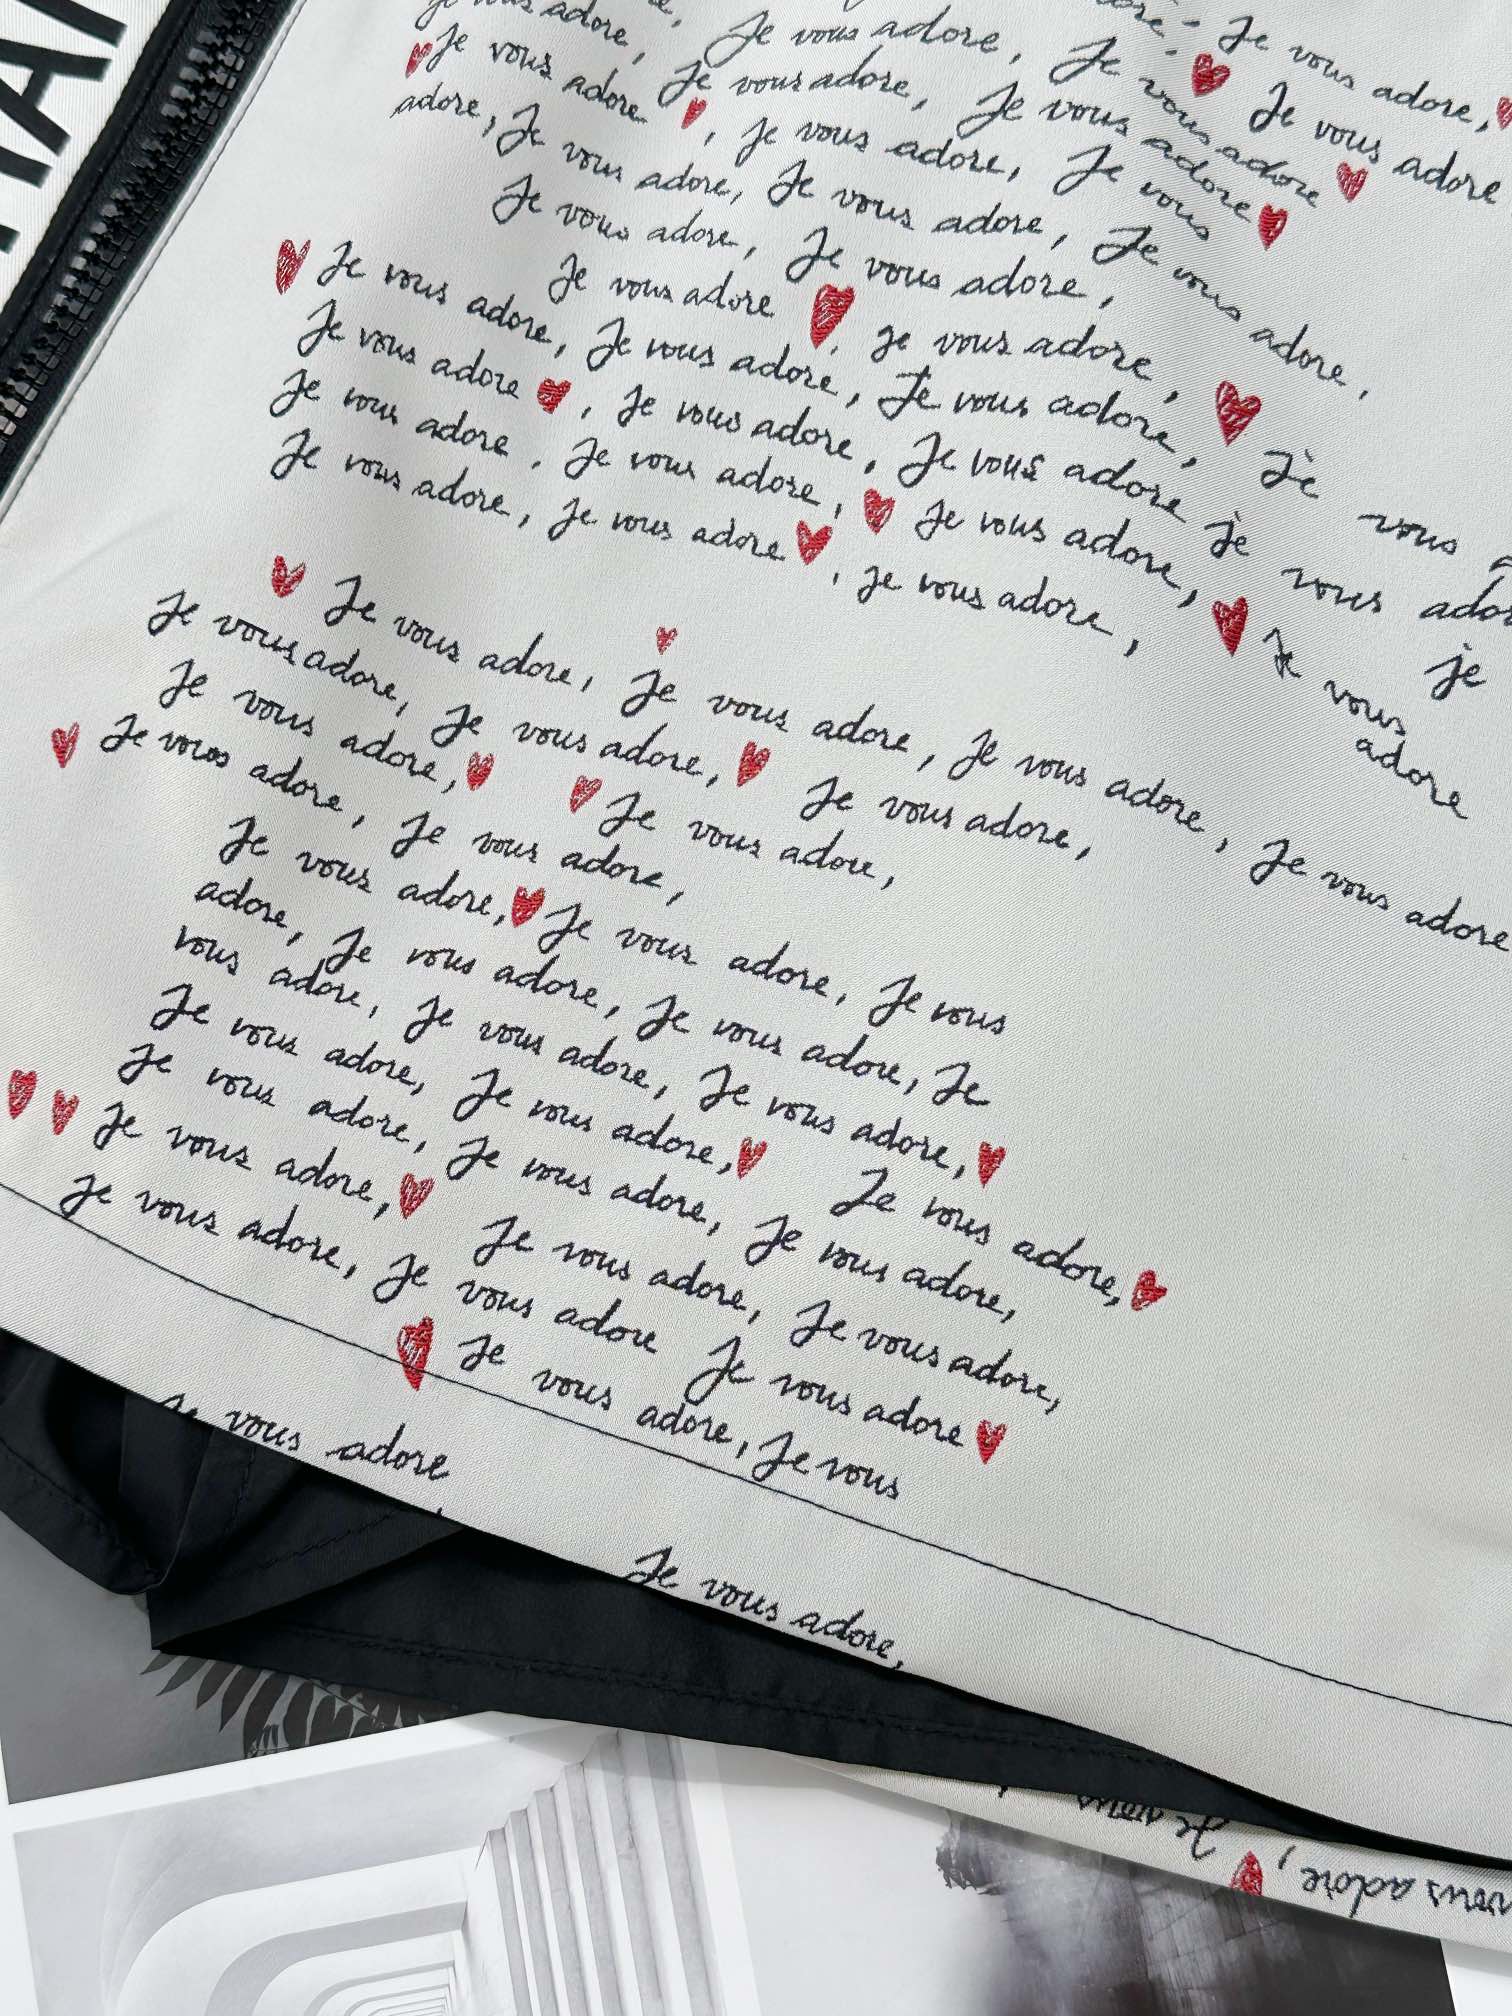 Je vous adore,
vous adore, Je vous adore, Je vous adore,
Je vous adore Je vous adore, Je vous adore Je vous adore
adore, Je vous adore, Je vous adore
Je vous adore, Je vous adore, Je vous
Je vous adore, Je vous adore, Je vous adore,
Je vous adore, je vous adore,
Je vous adore, Je vous adore, Je vous adore, Je vous
Je vous adore, Je vous adore, Je vous adore je vous ador
Je vous adore, Je vous adore, Je vous adore, je
Je vous adore, Je vous adore, je vous adore, Je vous
adore
Je vous adore, Je vous adore, Je vous adore, Je vous adore
Je vous adore, Je vous adore, Je vous adore,
Je vous adore, Je vous adore,
Je vous adore, Je vous adore,
Je vous adore, Je vous adore, Je vous
adore, Je vous adore, Je vous adore, Je
vous adore, Je vous adore, Je vous adore,
Je vous adore, Je vous adore, Je vous adore,
Je vous adore, Je vous adore, Je vous adore,
Je vous adore, Je vous adore, Je vous adore,
Je vous adore, Je vous adore Je vous adore
Je vous adore, Je vous
Je vous adore
Je vous adore,
vous adore, Je vous